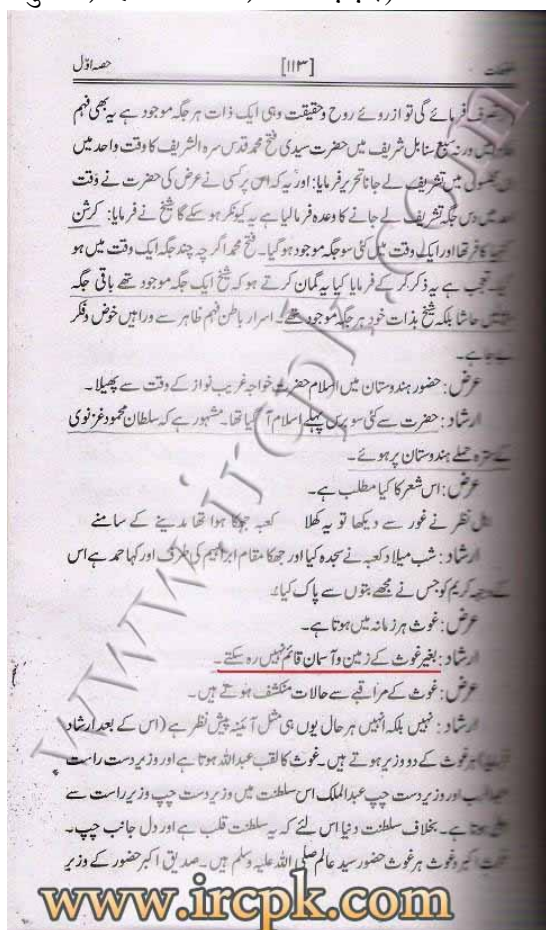 حصہ اوّل [۱۱۳]
تصرف فرمائے گی تو از روئے روح و حقیقت وہی ایک ذات ہر جگہ موجود ہے یہ بھی فہم
ورنہ سبع سنابل شریف میں حضرت سیدی فتح محمد قدس سرہ الشریف کا وقت واحد میں
مجلسوں میں تشریف لے جانا تحریر فرمایا: اور یہ کہ اس پر کسی نے عرض کی حضرت نے وقت
میں دس جگہ تشریف لے جانے کا وعدہ فرما لیا ہے یہ کیونکر ہو سکے گا شیخ نے فرمایا: کرشن
کنہیا کافر تھا اور ایک وقت میں کئی سو جگہ موجود ہو گیا۔ فتح محمد اگر چہ چند جگہ ایک وقت میں ہو
تعجب ہے یہ ذکر کر کے فرمایا کیا یہ گمان کرتے ہو کہ شیخ ایک جگہ موجود تھے باقی جگہ
حاشا بلکہ شیخ بذات خود ہر جگہ موجود تھے۔ اسرار باطن فہم ظاہر سے ورا ہیں خوض و فکر
بے جا ہے۔
عرض: حضور ہندوستان میں اسلام حضرت خواجہ غریب نواز کے وقت سے پھیلا۔
ارشاد: حضرت سے کئی سو برس پہلے اسلام آ گیا تھا۔ مشہور ہے کہ سلطان محمود غزنوی
کے سترہ حملے ہندوستان پر ہوئے۔
عرض: اس شعر کا کیا مطلب ہے۔
اہل نظر نے غور سے دیکھا تو یہ کھلا کعبہ جھکا ہوا تھا مدینے کے سامنے
ارشاد: شب میلاد کعبہ نے سجدہ کیا اور جھکا مقام ابراہیم کی طرف اور کہا حمد ہے اس
کے وجہ کریم کو جس نے مجھے بتوں سے پاک کیا
عرض: غوث ہر زمانہ میں ہوتا ہے۔
ارشاد: بغیر غوث کے زمین و آسمان قائم نہیں رہ سکتے۔
عرض: غوث کے مراقبے سے حالات منکشف ہوتے ہیں۔
ارشاد: نہیں بلکہ انہیں ہر حال یوں ہی مثل آئینہ پیش نظر ہے (اس کے بعد ارشاد
ہر غوث کے دو وزیر ہوتے ہیں۔ غوث کا لقب عبداللہ ہوتا ہے اور وزیر دست راست
اور وزیر دست چپ عبدالملک اس سلطنت میں وزیر دست چپ وزیر راست سے
ہوتا ہے۔ بخلاف سلطنت دنیا اس لئے کہ یہ سلطنت قلب ہے اور دل جانب چپ۔
غوث اکبر و غوث ہر غوث حضور سید عالم صلی اللہ علیہ وسلم ہیں۔ صدیق اکبر حضور کے وزیر
www.ircpk.com
www.ircpk.com